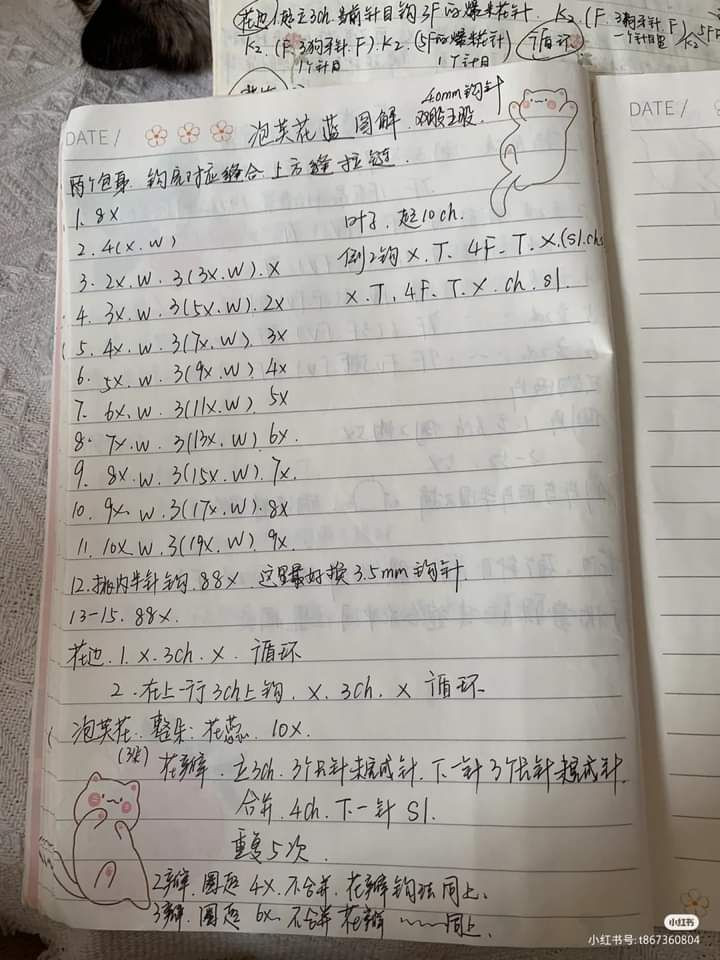 花边 1. 起立3ch. 当前针目钩3F的爆米花针. K2. (F. 3狗牙针. F)
一个针目里 K2 5F
K2. (F. 3狗牙针. F). K2. (5F的爆米花针) 循环
1个针目 1个针目
DATE /
泡芙花蓝图解. 4.0mm钩针
双股五股.
两个包身. 钩完对应缝合. 上方缝拉链.
1. 8X
2. 4(X.W)
3. 2X.W. 3(3X.W).X
4. 3X.W. 3(5X.W).2X
5. 4X.W. 3(7X.W). 3X
6. 5X.W. 3(9X.W) 4X
7. 6X.W. 3(11X.W). 5X
8. 7X.W. 3(13X.W). 6X.
9. 8X.W. 3(15X.W). 7X.
10. 9X. W. 3(17X.W). 8X
11. 10X.W. 3(19X.W). 9X.
叶子. 起10ch.
倒2钩 X. T. 4F. T. X. (Sl.ch.
X. T. 4F. T. X. ch. Sl.
12. 挑内半针钩. 88X. 这里最好换3.5mm钩针.
13-15. 88X.
花边. 1. X. 3ch. X. 循环
2. 在上一行3ch上钩. X. 3ch. X 循环.
泡芙花. 整朵: 花蕊. 10X.
花瓣. 立3ch. 3个长针未完成针. 下一针3个长针未完成针.
合并. 4ch. 下一针Sl.
重复5次
2瓣. 圈起4X. 不合并. 花瓣钩法同上.
3瓣. 圈起6X. 不合并 花瓣 同上.
DATE /
小红书
小红书号: t867360804